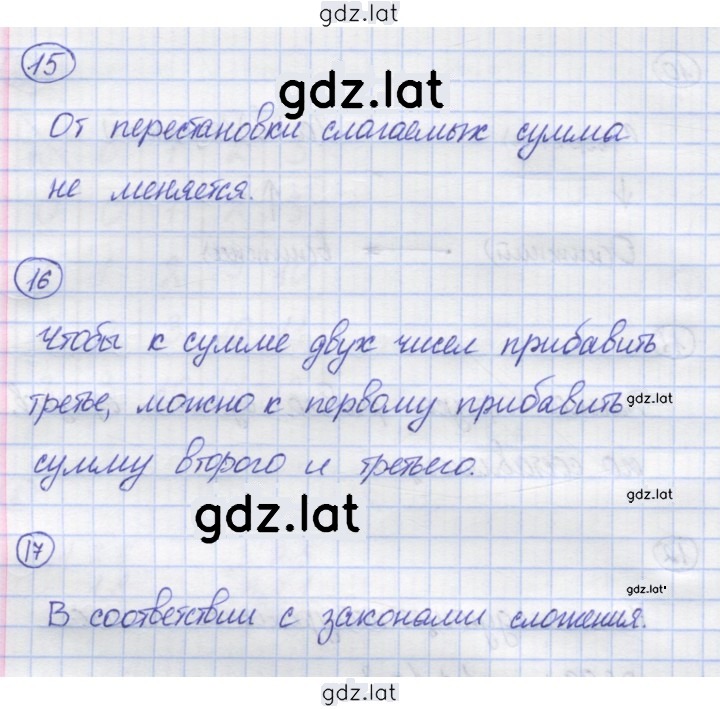 gdz.lat
15
gdz.lat
От перестановки слагаемых сумма
не меняется.
16
Чтобы к сумме двух чисел прибавить
третье, можно к первому прибавить
gdz.lat
сумму второго и третьего.
gdz.lat
gdz.lat
17
gdz.lat
В соответствии с законами сложения.
gdz.lat